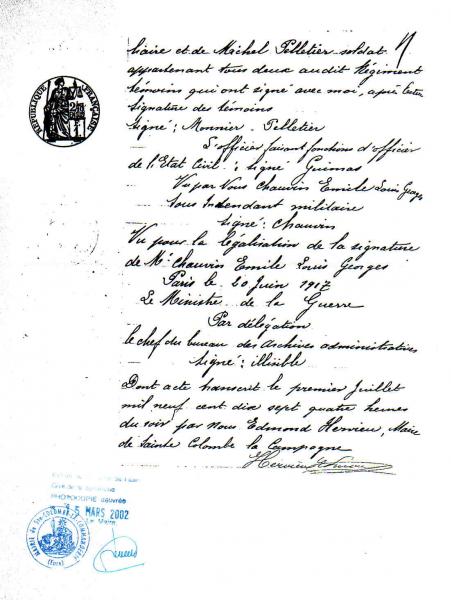 REPUBLIQUE FRANÇAISE
liaire et de Michel Pelletier soldat
appartenant tous deux audit Régiment
témoins qui ont signé avec moi, après
signature des témoins
signé : Monnier . Pelletier
L'officier faisant fonctions d'officier
de l'Etat Civil : signé Guimas
Vu par Nous Chauvin Emile Louis Georges
Sous Intendant militaire
signé : Chauvin
Vu pour la légalisation de la signature
de Mr Chauvin Emile Louis Georges
Paris le 20 Juin 1917
Le Ministre de la Guerre
Par délégation
le chef du bureau des Archives administratives
signé : illisible
Dont acte transcrit le premier Juillet
mil neuf cent dix sept quatre heures
du soir par nous Edmond Hervieu, Maire
de Sainte Colombe la Campagne
Hervieu
PHOTOCOPIE délivrée
15 MARS 2002
Le Maire
(Eure)